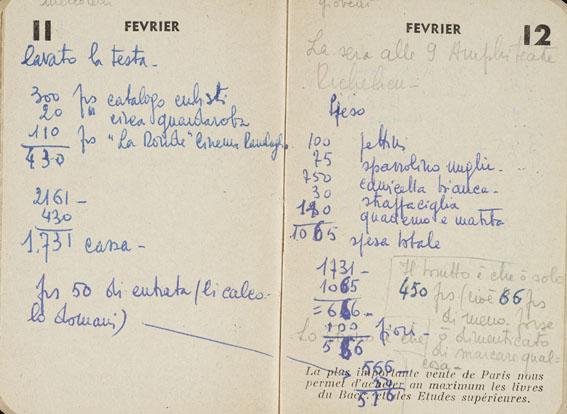 mercoledì
11 FEVRIER
lavato la testa -
300 frs catalogo cubisti
20 " circa guardaroba
110 frs "La Ronde" Cinema
430
2161 -
430
1.731 cassa -
frs 50 di entrata (li calco-
lo domani)
giovedì
FEVRIER 12
La sera alle 9 Amphiteatre
Richelieu -
Speso
100 pettini
75 spazzolino unghie -
750 camicetta bianca -
30
quaderno e matita
1065 spesa totale
1731 -
1065
= 666 -
100 fiori -
566
566 -
Il brutto è che è solo
450 frs (cioè 66 frs
di meno. forse
ho dimenticato
di marcare qual-
cosa -
La plus importante vente de Paris nous
permet d'acheter au maximum les livres
du Bacc. et des Etudes supérieures.